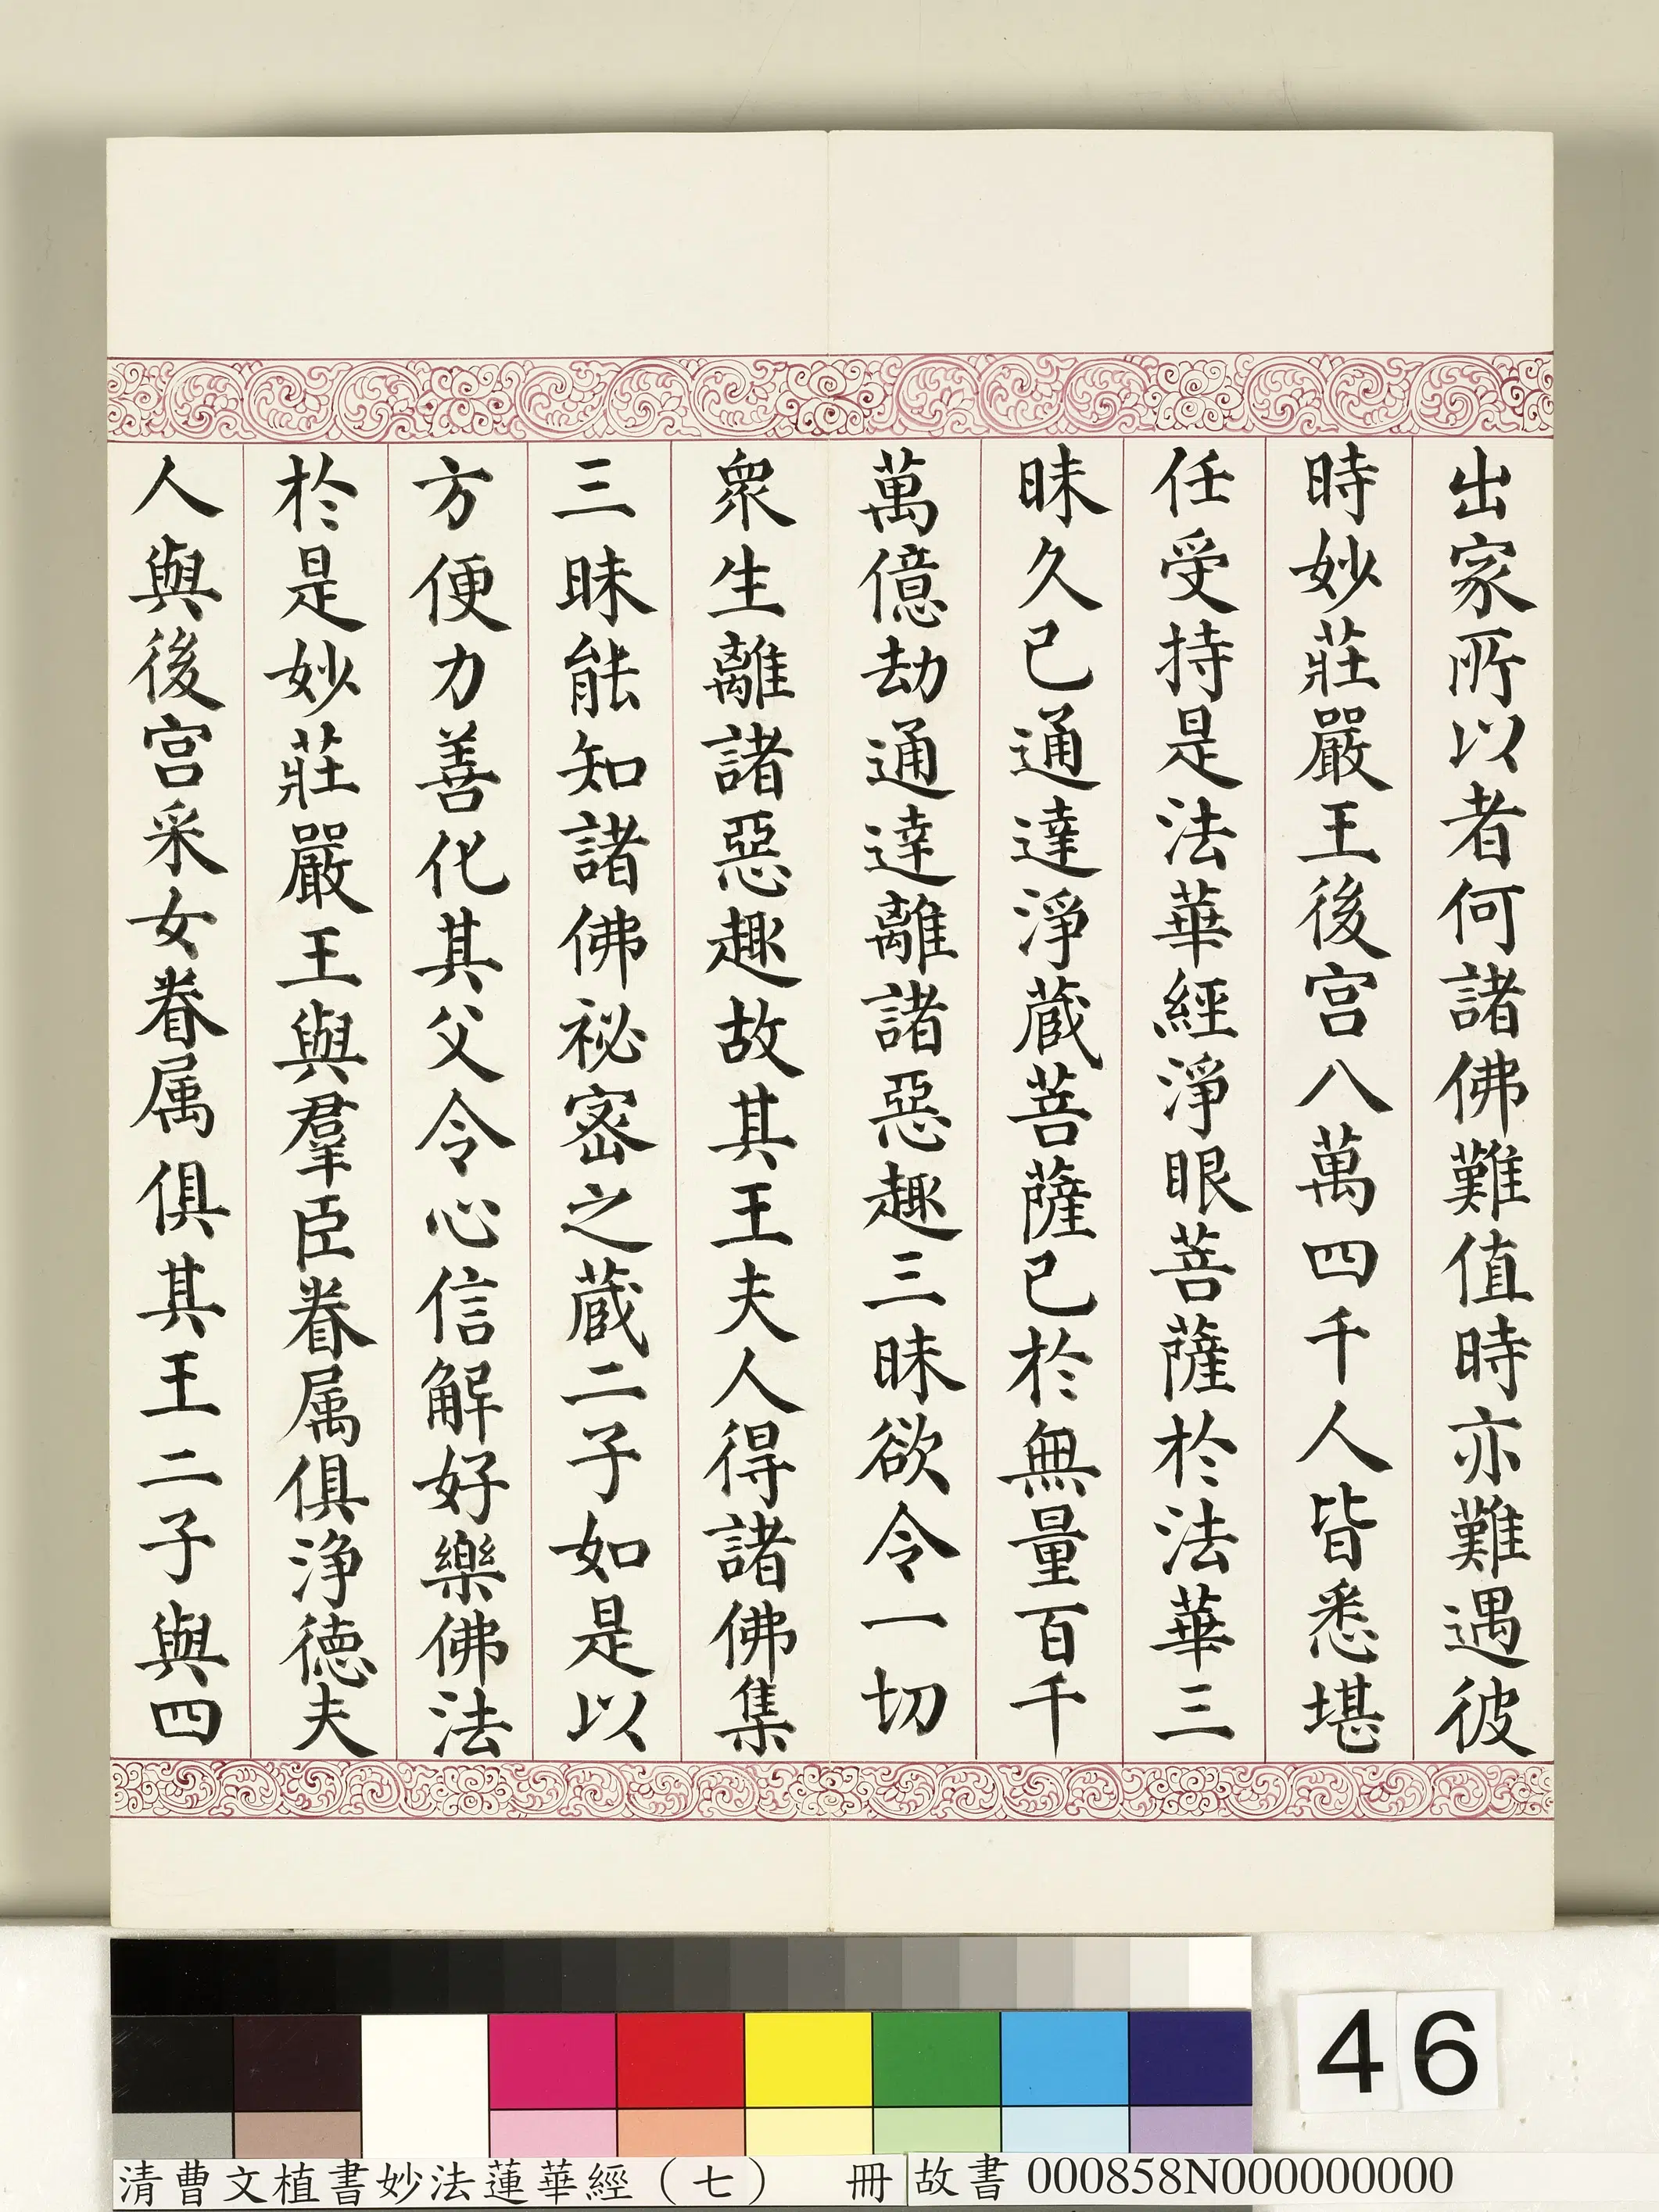 出家所以者何諸佛難值時亦難遇彼
時妙莊嚴王後宮八萬四千人皆悉堪
任受持是法華經淨眼菩薩於法華三
昧久已通達淨蔵菩薩已於無量百千
萬億劫通達離諸惡趣三昧欲令一切
衆生離諸惡趣故其王夫人得諸佛集
三昧能知諸佛祕密之蔵二子如是以
方便力善化其父令心信解好樂佛法
於是妙莊嚴王與羣臣眷属俱浄德夫
人與後宮采女眷属俱其王二子與四
46
清曹文植書妙法蓮華經（七） 冊 故書 000858N000000000